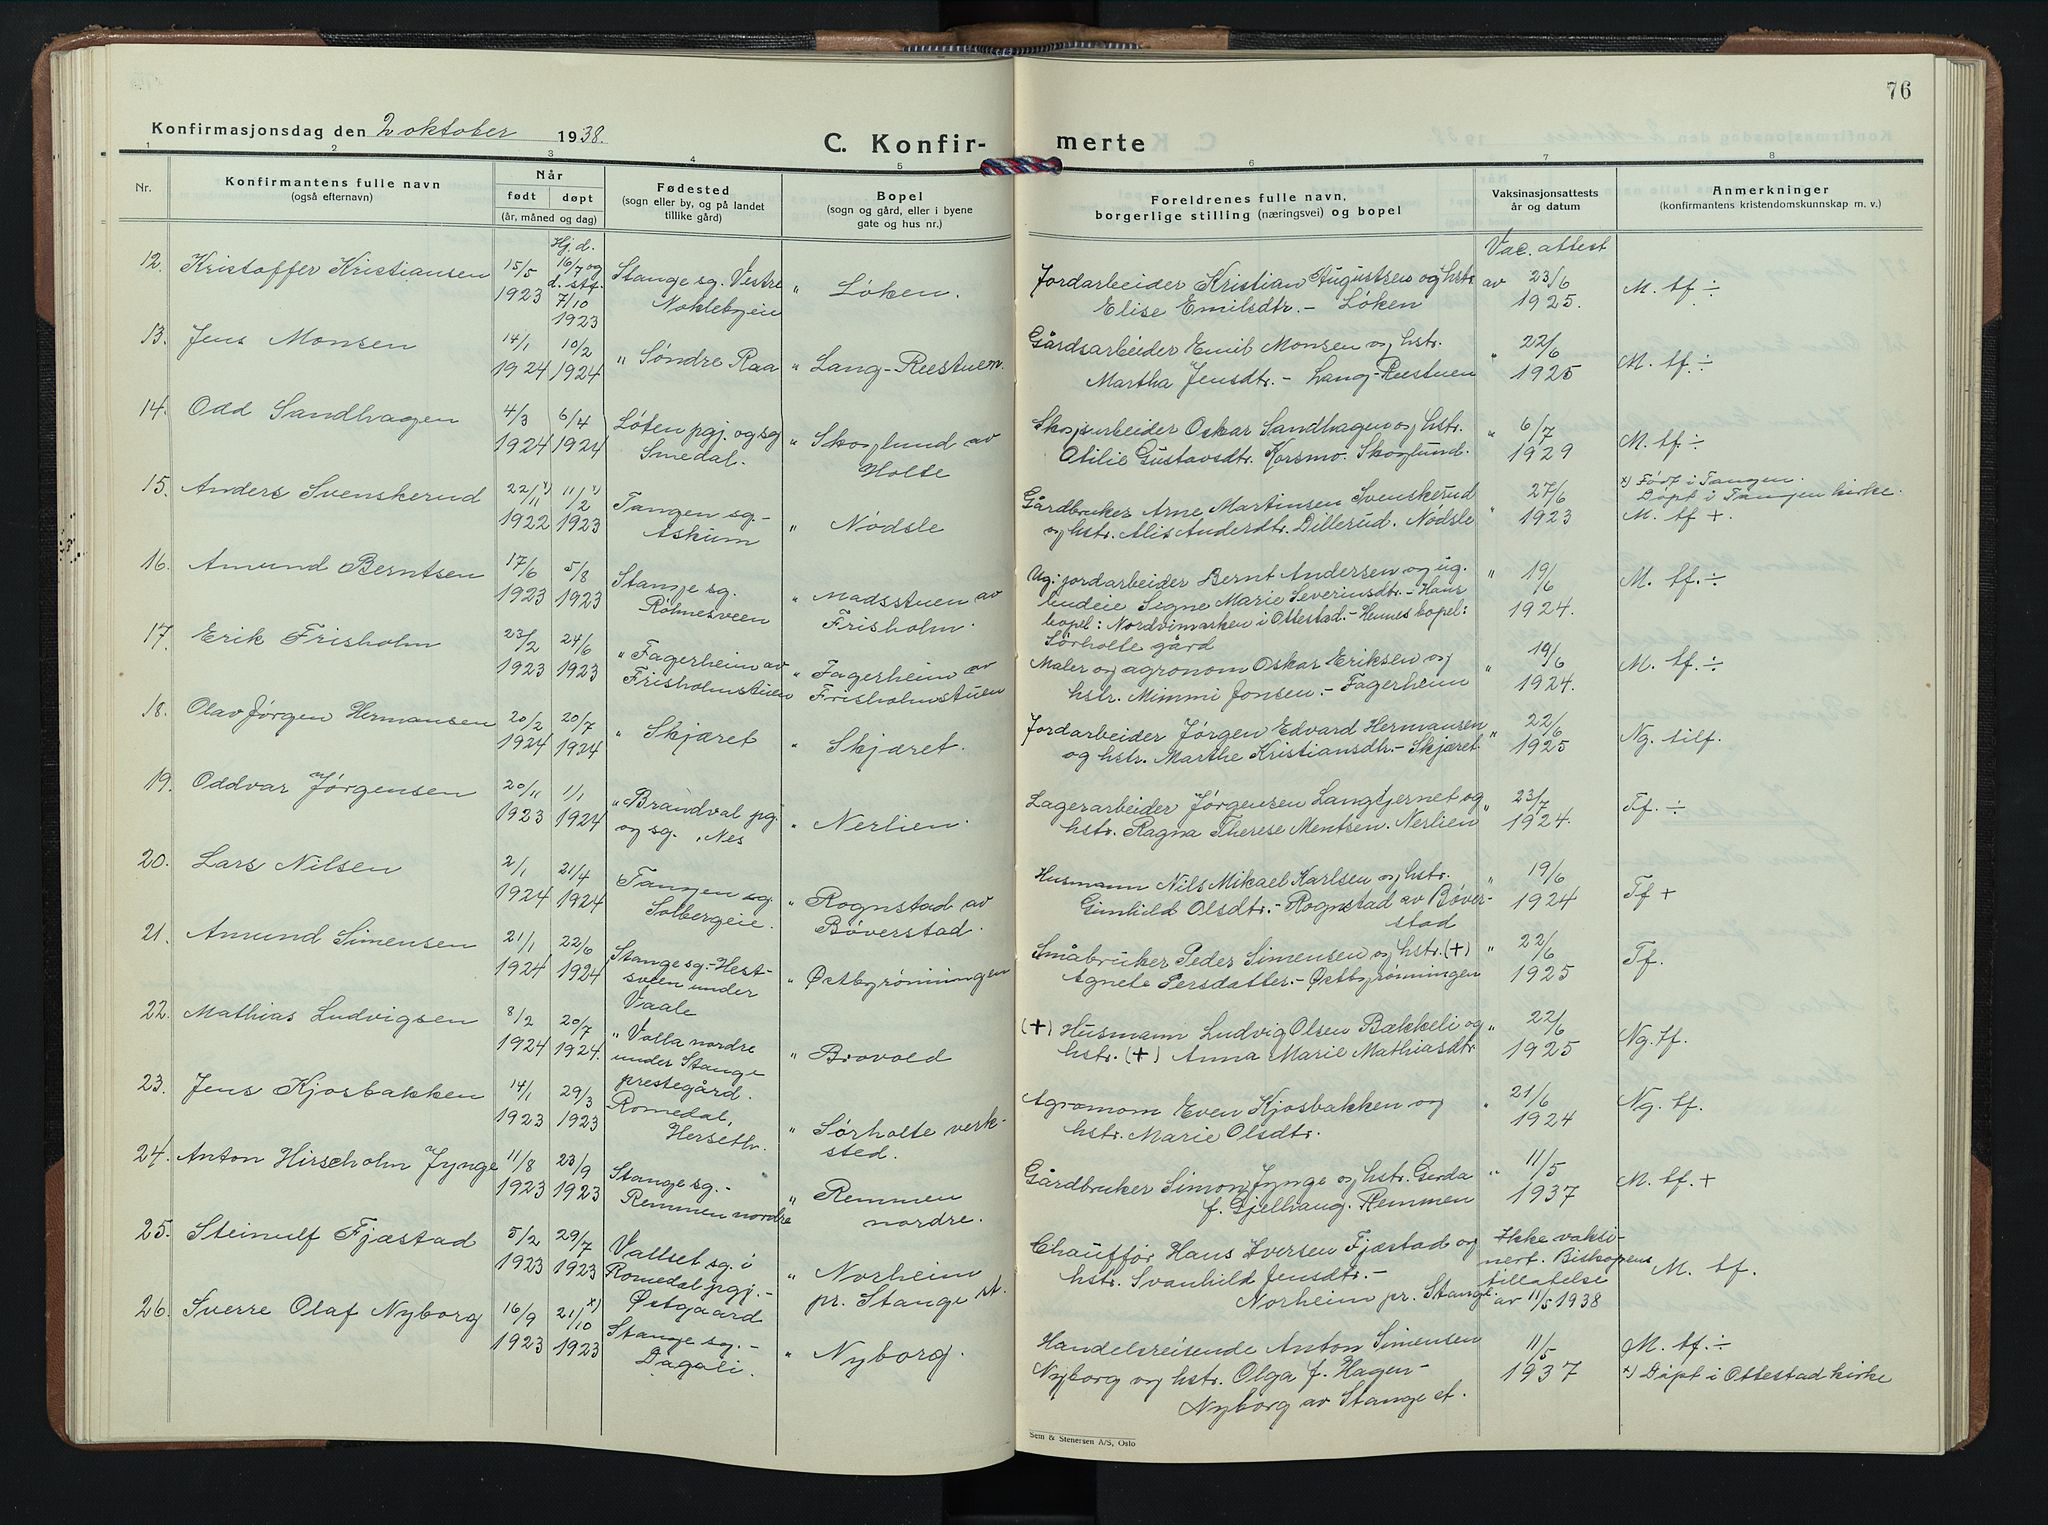 76
Konfirmasjonsdag den 2 oktober 1938.
C. Konfir-
merte
1 2 3 4 5 6 7 8
Nr.
Konfirmantens fulle navn
(også efternavn)
Når
født døpt
(år, måned og dag)
Fødested
(sogn eller by, og på landet
tillike gård)
Bopel
(sogn og gård, eller i byene
gate og hus nr.)
Foreldrenes fulle navn,
borgerlige stilling (næringsvei) og bopel
Vaksinasjonsattests
år og datum
Anmerkninger
(konfirmantens kristendomskunnskap m. v.)
12. Kristoffer Kristiansen
15/5
1923
Hj. d.
16/7 og
d. stf.
7/10
1923
Stange sg. Vestre
Noklebyeie
" Løken.
Jordarbeider Kristian Augustsen og hstr.
Elise Emilsdtr. - Løken
Vac. attest
av 23/6
1925.
M. tf ÷
13. Jens Monsen
14/1
1924
10/2
1924
" Søndre Raa
" Lang-Reestuen.
Gårdsarbeider Emil Monsen og hstr.
Martha Jensdtr. - Lang-Reestuen
" 22/6
1925
M. tf. ÷
14. Odd Sandhagen
4/3
1924
6/4
1924
Løten pgj. og sg
Smedal.
" Skoglund av
Holte
Skogsarbeider Oskar Sandhagen og hstr.
Otilie Gustavsdtr. Korsmo. Skoglund.
" 6/7
1929
M. tf. ÷
15. Anders Svenskerud
22/11 x)
1922
11/2 x)
1923
Tangen sg. -
Askum
" Nødsle
Gårdbruker Arne Martinsen Svenskerud
og hstr. Alis Andersdtr. Dillerud. Nødsle
" 27/6
1923
x) Født i Tangen.
Døpt i Tangen kirke.
M. tf +.
16. Amund Berntsen
17/6
1923
5/8
1923
Stange sg.
Røhnesveen
" Madsstuen av
Frisholm.
Ug. jordarbeider Bernt Andersen og ug.
budeie Signe Marie Severinsdtr. - Hans
bopel: Nordvimarken i Ottestad. - Hennes bopel:
Sørholte gård
" 19/6
1924.
M. tf. ÷
17. Erik Frisholm
23/2
1923
24/6
1923
" Fagerheim av
Frisholmstuen
" Fagerheim av
Frisholmstuen
Maler og agronom Oskar Eriksen og
hstr. Mimmi Jonsen. - Fagerheim
" 19/6
1924.
M. tf. ÷
18. Olav Jørgen Hermansen
20/2
1924
20/7
1924
" Skjæret
" Skjæret.
Jordarbeider Jørgen Edvard Hermansen
og hstr. Marthe Kristiansdtr. - Skjæret
" 22/6
1925
Ng. tilf.
19. Oddvar Jørgensen
20/11
1923
1/1
1924
" Brandval pg.
og sg. , Nes
" Nerlien.
Lagerarbeider Jørgensen Langtjernet og
hstr. Ragna Therese Mentsen. Nerlien
" 23/7
1924.
Tf. ÷
20. Lars Nilsen
2/1
1924
21/4
1924
Tangen sg.
Solbergeie.
" Rognstad av
Bøverstad.
Husmann Nils Mikael Karlsen og hstr.
Gunhild Olsdtr. - Rognstad av Bøver-
stad
" 19/6
1924
Tf +
21. Amund Simensen
21/1
1924
22/6
1924
Stange sg. - Hest-
sveen under
Vaale
" Østbyrønningen
Småbruker Peder Simensen og hstr. (+)
Agnete Persdatter. - Østbyrønningen
" 22/6
1925
Tf.
22. Mathias Ludvigsen
8/2
1924
20/7
1924.
" Valla nordre
under Stange
prestegård.
" Brovold
(+) Husmann Ludvig Olsen Bækkeli og
hstr. (+) Anna Marie Mathiasdtr.
" 22/6
1925
Ng. tf.
23. Jens Kjosbakken
14/1
1923
29/3
1923
Romedal,
Herseth.
" Sørholte verk-
sted.
Agronom Even Kjosbakken og
hstr. Marie Olsdtr.
" 21/6
1924
Ng. tf.
24. Anton Hirscholm Jynge
11/8
1923
23/9
1923
Stange sg. -
Remmen nordre
" Remmen
nordre.
Gårdbruker Simon Jynge og hstr. Gerda
f. Gjelhaug. Remmen
" 11/5
1937
M. tf. +
25. Steinulf Fjæstad
5/2
1923
29/7
1923
Vallset sg. i
Romedal pgj. -
Østgaard
" Norheim
pr. Stange st.
Chauffør Hans Iversen Fjæstad og
hstr. Svanhild Jensdtr. -
Norheim pr. Stange.
Ikke vaksi-
nert. Biskopens
tillatelse
av 11/5 1938
M. tf.
26. Sverre Olaf Nyborg
16/9
1923
21/10 x)
1923
Stange sg. -
Dagali.
" Nyborg.
Handelsreisende Anton Simensen
Nyborg og hstr. Olga f. Hagen -
Nyborg av Stange st.
11/5
1937
M. tf. ÷
x) Døpt i Ottestad kirke
Sem & Stenersen A/S, Oslo